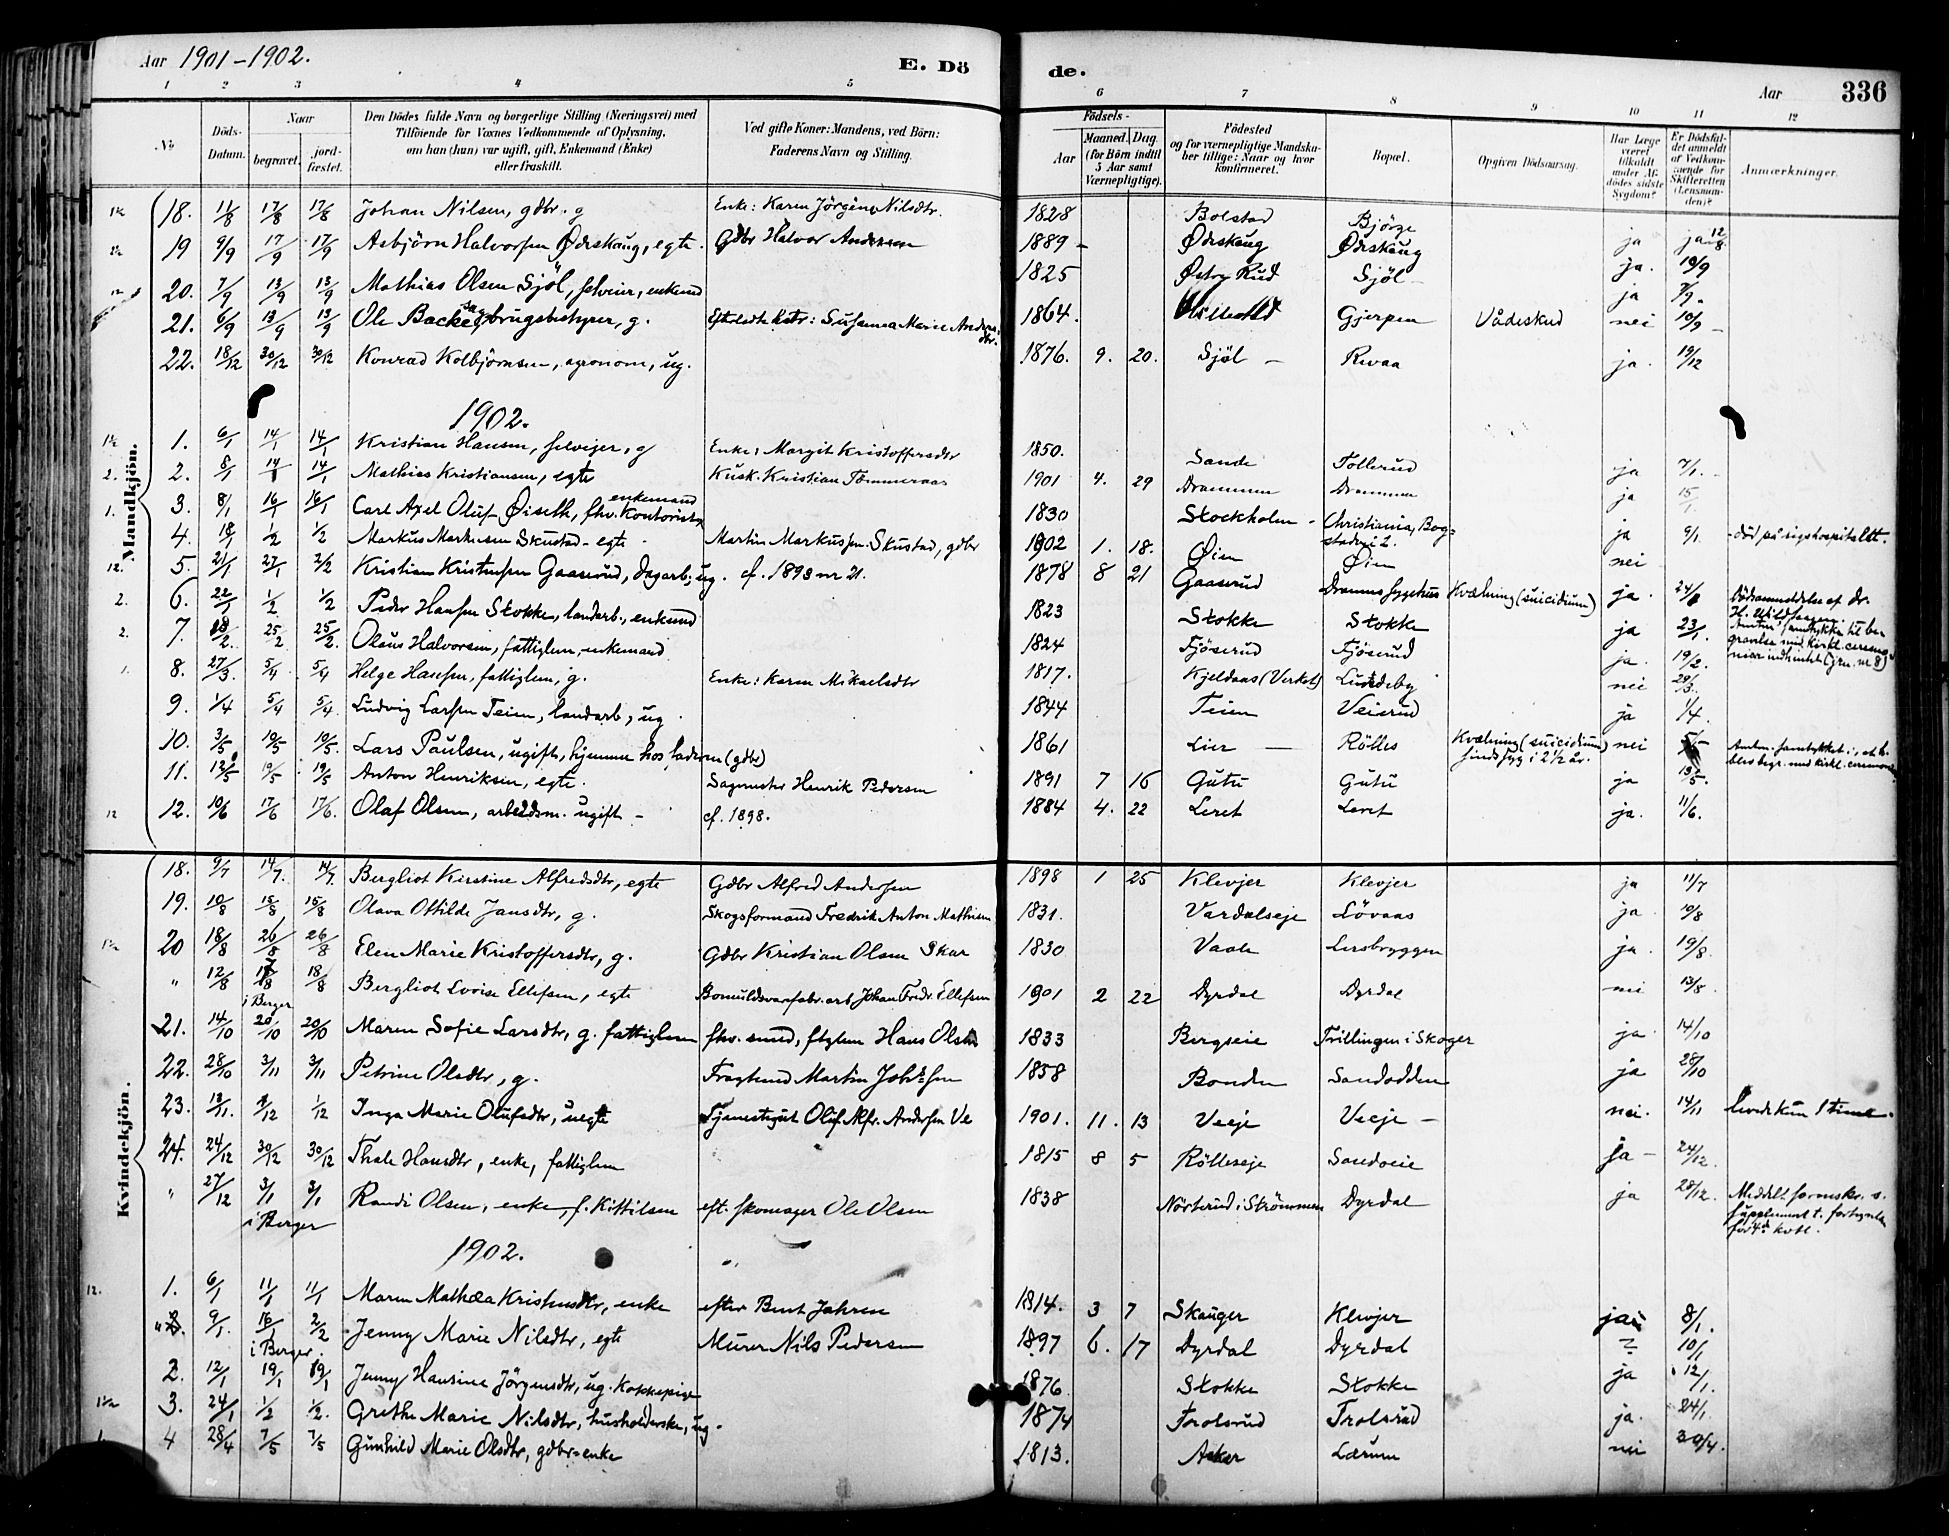 Aar 1901-1902. E. Dö de. Aar 336
1 2 3 4 5 6 7 8 9 10 11 12
No. Döds-Datum. Naar begravet. jordfæstet. Den Dödes fulde Navn og borgerlige Stilling (Næringsvei) med Tilföiende for Voxnes Vedkommende af Oplysning, om han (hun) var ugift, gift, Enkemand (Enke) eller fraskilt. Ved gifte Koner: Mandens, ved Börn: Faderens Navn og Stilling. Födsels- Aar Maaned. Dag. (for Börn indtil 5 Aar samt Værnepligtige). Födested og for værnepligtige Mandskaber tillige: Naar og hvor konfirmeret. Bopæl. Opgiven Dödsaarsag. Har Læge været tilkaldt under Afdödes sidste Sygdom? Er Dödsfaldet anmeldt af Vedkommende for Skifteretten (Lensmanden)? Anmærkninger.
Mandkjön.
18. 11/8 17/8 17/8 Johan Nilsen, gdbr. g Enke: Karen Jörgine Nilsdtr. 1828 Bolstad Bjørge ja ja 12/8.
19 9/9 17/9 17/9 Asbjörn Halvorsen Ødeskaug, egte. Gdbr Halvor Andersen 1889 - Ødeskaug Ødeskaug ja. 10/9
20. 7/9 13/9 13/9 Mathias Olsen Sjöl, selveier, enkemd 1825 Østry Rud Sjöl - ja 7/9.
21. 6/9 13/9 13/9 Ole Backe, sagbrugsbestyrer, g. Efterladte hstr: Susanna Marie Andersdtr. 1864. Gjerpen Vådeskud nei 10/9 -
22. 18/12 30/12 30/12 Konrad Kolbjörnsen, agronom, ug. 1876. 9. 20. Sjöl - Revaa ja. 19/12
1902.
1. 6/1 14/1 14/1 Kristian Hansen, selveier, g Enke: Margit Kristoffersdtr 1850. Sande Tollerud ja 7/1. -
2. 8/1 14/1 14/1 Mathias Kristiansen, egte Kusk. Kristian Tömmeraas 1901 4. 29 Drammen Drammen ja 15/1.
3. 8/1 16/1 16/1 Carl Axel Oluf Öiseth, fhv. Kontorist, enkemand 1830 Stockholm - Christiania, Bogstadvei 2. ja 9/1. - död på rigshospitalet.
4. 18/1 1/2 1/2 Markus Markusen Skustad - egte Martin Markussen Skustad, gdbr 1902 1. 18. Øien Øien nei
5. 21/1 27/1 2/2 Kristian Kristensen Gaaserud, dagarb; ug. cf. 1893 nr 21. 1878 8 21 Gaaserud Drammens sygehus Kvælning (suicidium) ja. 24/1 Dödsanmeldelse af dr. H. Wildhagen. Amtets samtykke til begravelse med kirkl. ceremonier indhentet (jrn. nr 8)
6. 22/1 1/2 1/2 Peder Hansen Stokke, landarb., enkemd 1823 Stokke Stokke ja 23/1.
7. 18/2. 25/2 25/2. Olaus Halvorsen, fattiglem, enkemand 1824 Fjöserud Fjöserud ja. 19/2.
8. 27/3. 5/4 5/4 Helge Hansen, fattiglem, g. Enke: Karen Mikaelsdtr 1817. Kjeldaas (Verket) Lundeby nei 29/3.
9. 1/4 5/4 5/4. Ludvig Larsen Teien, landarb, ug 1844 Teien Veierud ja 1/4.
10. 3/5 10/5 10/5. Lars Paulsen, ugift, hjemme hos faderen (gdbr) 1861 Lier - Rölles Kvælning (suicidium) sindssyg i 2 1/2 år. nei
11. 12/5 19/5 19/5 Anton Henriksen, egte. Sagmester Henrik Pedersen 1891 7 16 Gutu Gutu ja 13/5.
12. 10/6 17/6 17/6. Olaf Olsen, arbeidsm. ugift - cf. 1898. 1884 4. 22 Leret Leret ja. 11/6.
Kvindekjön.
18. 9/7 14/7. 14/7. Bergliot Kirstine Alfredsdtr, egte Gdbr Alfred Andersen 1898 1 25 Klevjer Klevjer ja 11/7
19. 10/8 15/8 15/8 Olava Ottilde Jansdtr, g. Skogsformand Fredrik Anton Mathisen 1831. Vardalseje Lövaas ja 10/8
20 18/8 26/8 26/8 Elen Marie Kristoffersdtr, g. Gdbr Kristian Olsen Skar 1830 Vaale Lersbryggen ja. 19/8.
" 12/8 18/8 i Berger 18/8 Bergliot Lovise Ellefsen, egte Bomuldsvarefabr. arb Johan Fredr. Ellefsen 1901 2 22 Dyrdal Dyrdal nei 13/8.
21. 14/10 20/10 20/10 Maren Sofie Larsdtr, g. fattiglem fhv. smed, ftglem Hans Olsen 1833 Bergseie Trillingen i Skoger ja. 14/10
22. 28/10 3/11 3/11 Petrine Olsdtr, g. Martin 1858 Bonden Sandodden ja 28/10
23. 13/11. 1/12 1/12 Inga Marie Olufsdtr, uegte Tjenestegut Oluf Alfr. Andersen Ve 1901. 11. 13 Veeje Veeje - nei. 14/11 levede kun 1 time.
24. 24/12 30/12 30/12 Thale Hansdtr, enke, fattiglem 1815 8 5 Rölleseje Sandveie ja - 24/12.
" 27/12 3/1 i Berger 3/1 Randi Olsen, enke, f. Kittilsen eft. skomager Ole Olsen 1838 Nörterud i Strömmen Dyrdal ja 28/12. Meddelt formskr. s.
1902.
1. 6/1 11/1 11/1 Maren Mathea Kristensdtr, enke efter Bent Jahren 1814. 3 7 Skauger Klevjer ja 8/1.
" 9/1. 16/1 i Berger. 2/2 Jenny Marie Nilsdtr, egte Murer Nils Pedersen 1897 6. 17 Dyrdal Dyrdal ? 10/1
2. 12/1 19/1 19/1 Jenny Hansine Jörgensdtr, ug. Kokkepige 1876 Stokke Stokke ja 12/1.
3. 24/1 1/2 1/2. Grethe Marie Nilsdtr, husholderske, ug. 1874 Trolsrud Trolsrud ja. 24/1.
4 28/4 7/5 7/5 Gunhild Marie Olsdtr, gdbr-enke 1813. Asker Lærum nei 30/4.